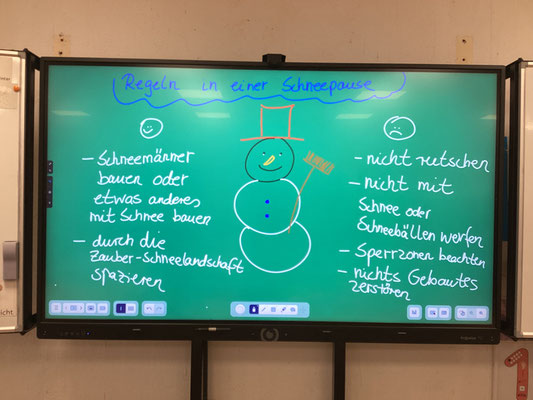 Regeln in einer Schneepause
- Schneemänner
bauen oder
etwas anderes
mit Schnee bauen
- durch die
Zauber-Schneelandschaft
spazieren
- nicht rutschen
- nicht mit
Schnee oder
Schneebällen werfen
- Sperrzonen beachten
- nichts Gebautes
zerstören